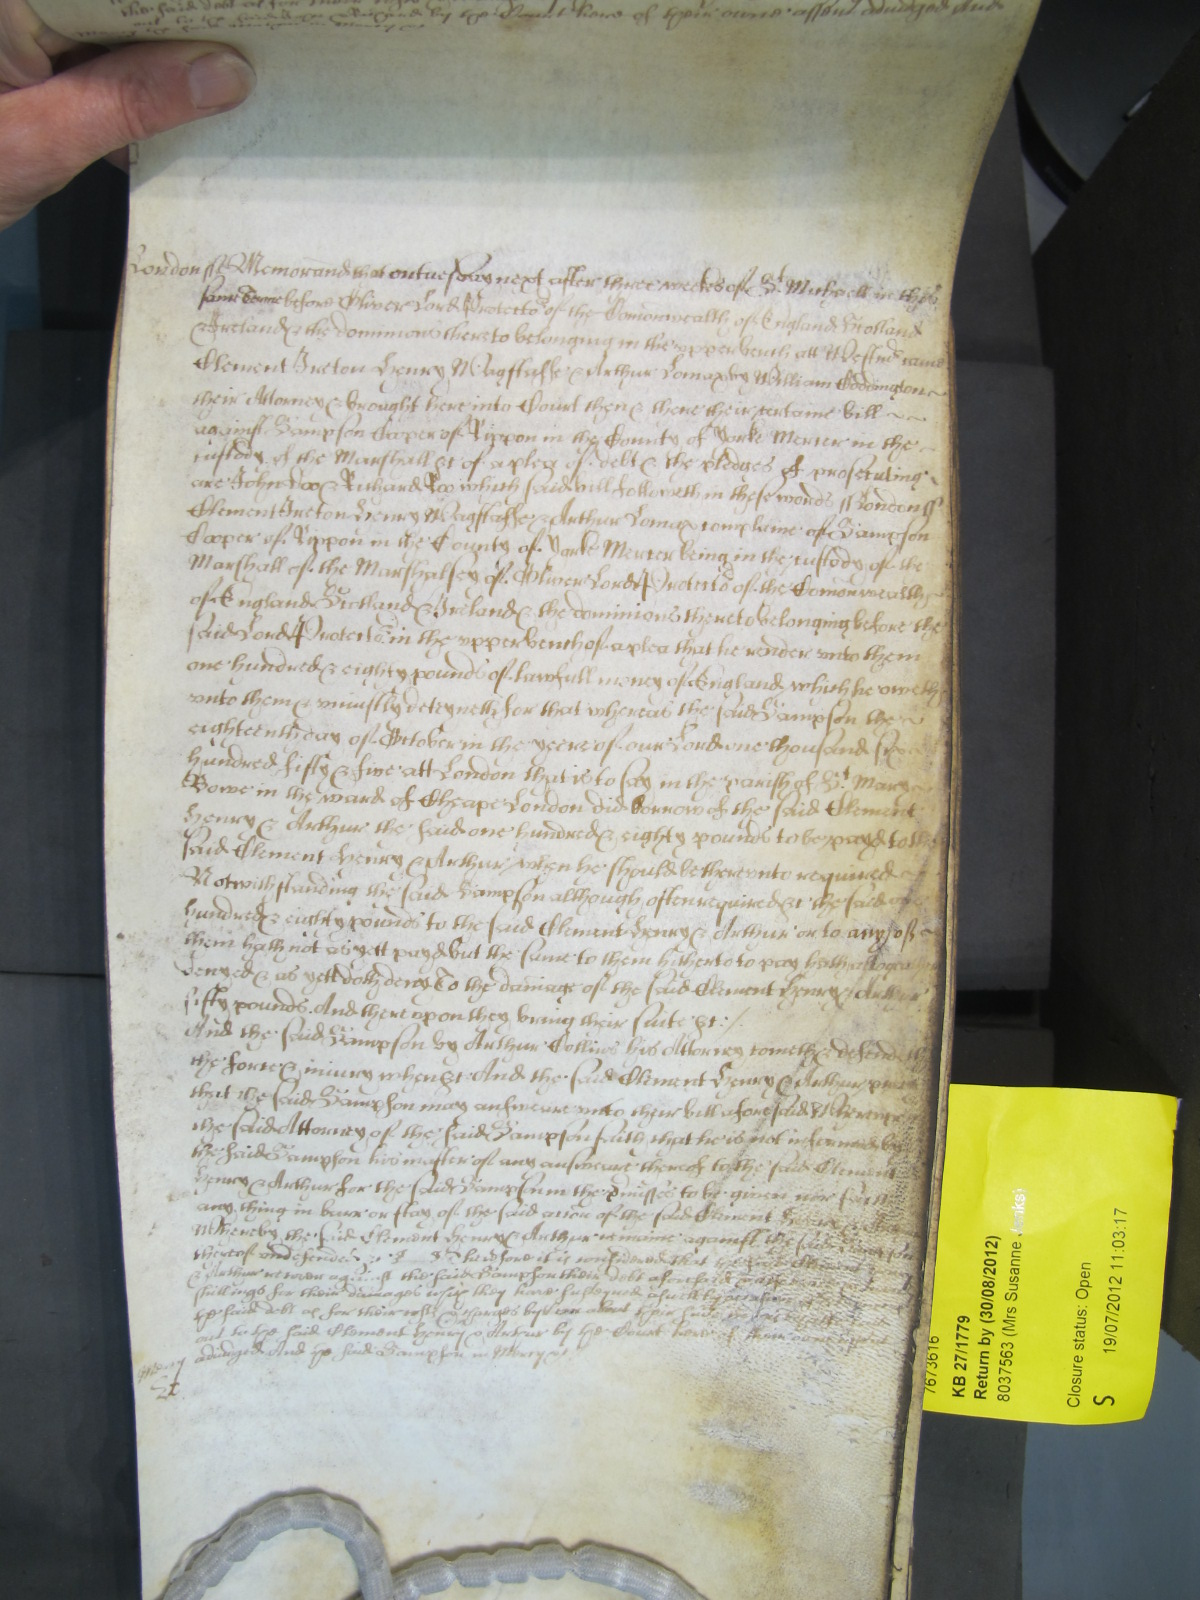 the said debt as for their
out to the said by the Court here of their owne assent adiudged And
London ss Memorand that on tuesday next after three weekes of St. Michaell in this
same terme before Oliver Lord Protector of the Comonwealth of England Scotland
& Ireland & the dominions thereto belonging in the upper bench att Westmr came
Clement Ireton Henry Wagstaffe & Arthur Lomax by William Coddington
their Attorney & brought here into Court then & there their certaine bill
against Sampson Cooper of Rippon in the County of Yorke Mercer in the
custody of the Marshall &c of a plea of debt & the pledges of prosecuting
are John Doo & Richard Roo which said bill followeth in these words ss London ss
Clement Ireton Henry Wagstaffe & Arthur Lomax complaine of Sampson
Cooper of Rippon in the County of Yorke Mercer being in the custody of the
Marshall of the Marshalsey of Oliver Lord Protector of the Comonwealth
of England Scotland & Ireland & the dominions thereto belonging before the
said Lord Protector in the upper bench of a plea that he render unto them
one hundred & eighty pounds of lawfull money of England which he oweth
unto them & uniustly deteyneth for that whereas the said Sampson the
eighteenth day of October in the yeere of our Lord one thousand six
hundred fifty & five att London that is to say in the parish of St. Mary
Bowe in the ward of Cheape London did borrow of the said Clement
Henry & Arthur the said one hundred & eighty pounds to be payd to the
said Clement Henry & Arthur when he should be thereunto required
Notwithstanding the said Sampson although often required &c the said one
hundred & eighty pounds to the said Clement Henry & Arthur or to any of
them hath not as yett payd but the same to them hitherto to pay hath altogether
denyed & as yett doth deny To the damage of the said Clement Henry & Arthur
fifty pounds And thereupon they bring their suite &c:/
And the said Sampson by Arthur Collins his Attorney cometh & defendeth
the force & iniury when &c And the said Clement Henry & Arthur pray
that the said Sampson may answeare unto their bill aforesaid Whereupon
the said Attorney of the said Sampson saith that he is not informed by
the said Sampson his master of any answeare thereof to the said Clement
Henry & Arthur for the said Sampson in the pmisses to be given nor saith
any thing in barr or stay of the said accon of the said Clement Henry & Arthur
Whereby the said Clement Henry & Arthur remaine against the said Sampson
thereof undefended &c Therefore it is considered that the said Clement Henry
& Arthur recover against the said Sampson their debt aforesaid &
shillings for their damages which they have susteyned aswell by occasion of
the said debt as for their costs & charges by them about their suite in this behalfe
out to the said Clement Henry & Arthur by the Court here of their owne assent
adiudged And the said Sampson in Mercy &c
Mercy
&c
7673616
KB 27/1779
Return by (30/08/2012)
8037563 (Mrs Susanne
Closure status: Open
S 19/07/2012 11:03:17